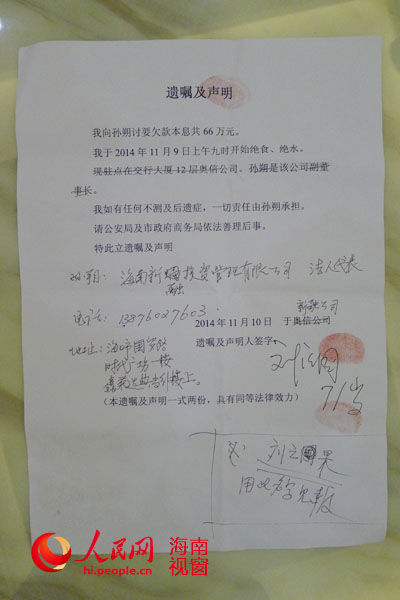 遗嘱及声明
我向孙朔讨要欠款本息共 66 万元。
我于 2014 年 11 月 9 日上午九时开始绝食、绝水。
现驻点在交行大厦 12 层奥信公司、孙朔是该公司副董
事长。
我如有任何不测及后遗症，一切责任由孙朔承担。
请公安局及市政府商务局依法善理后事。
特此立遗嘱及声明
孙朔：海南新融投资管理有限公司 法人代表
融
电话：13876027603
新融公司
2014 年 11 月 10 日 于奥信公司
地址：海口国贸路
遗嘱声明人签字：
时代广场一楼
71岁
（本遗嘱及声明一式两份，具有同等法律效力）
人民网 海南视窗
hi.people.cn